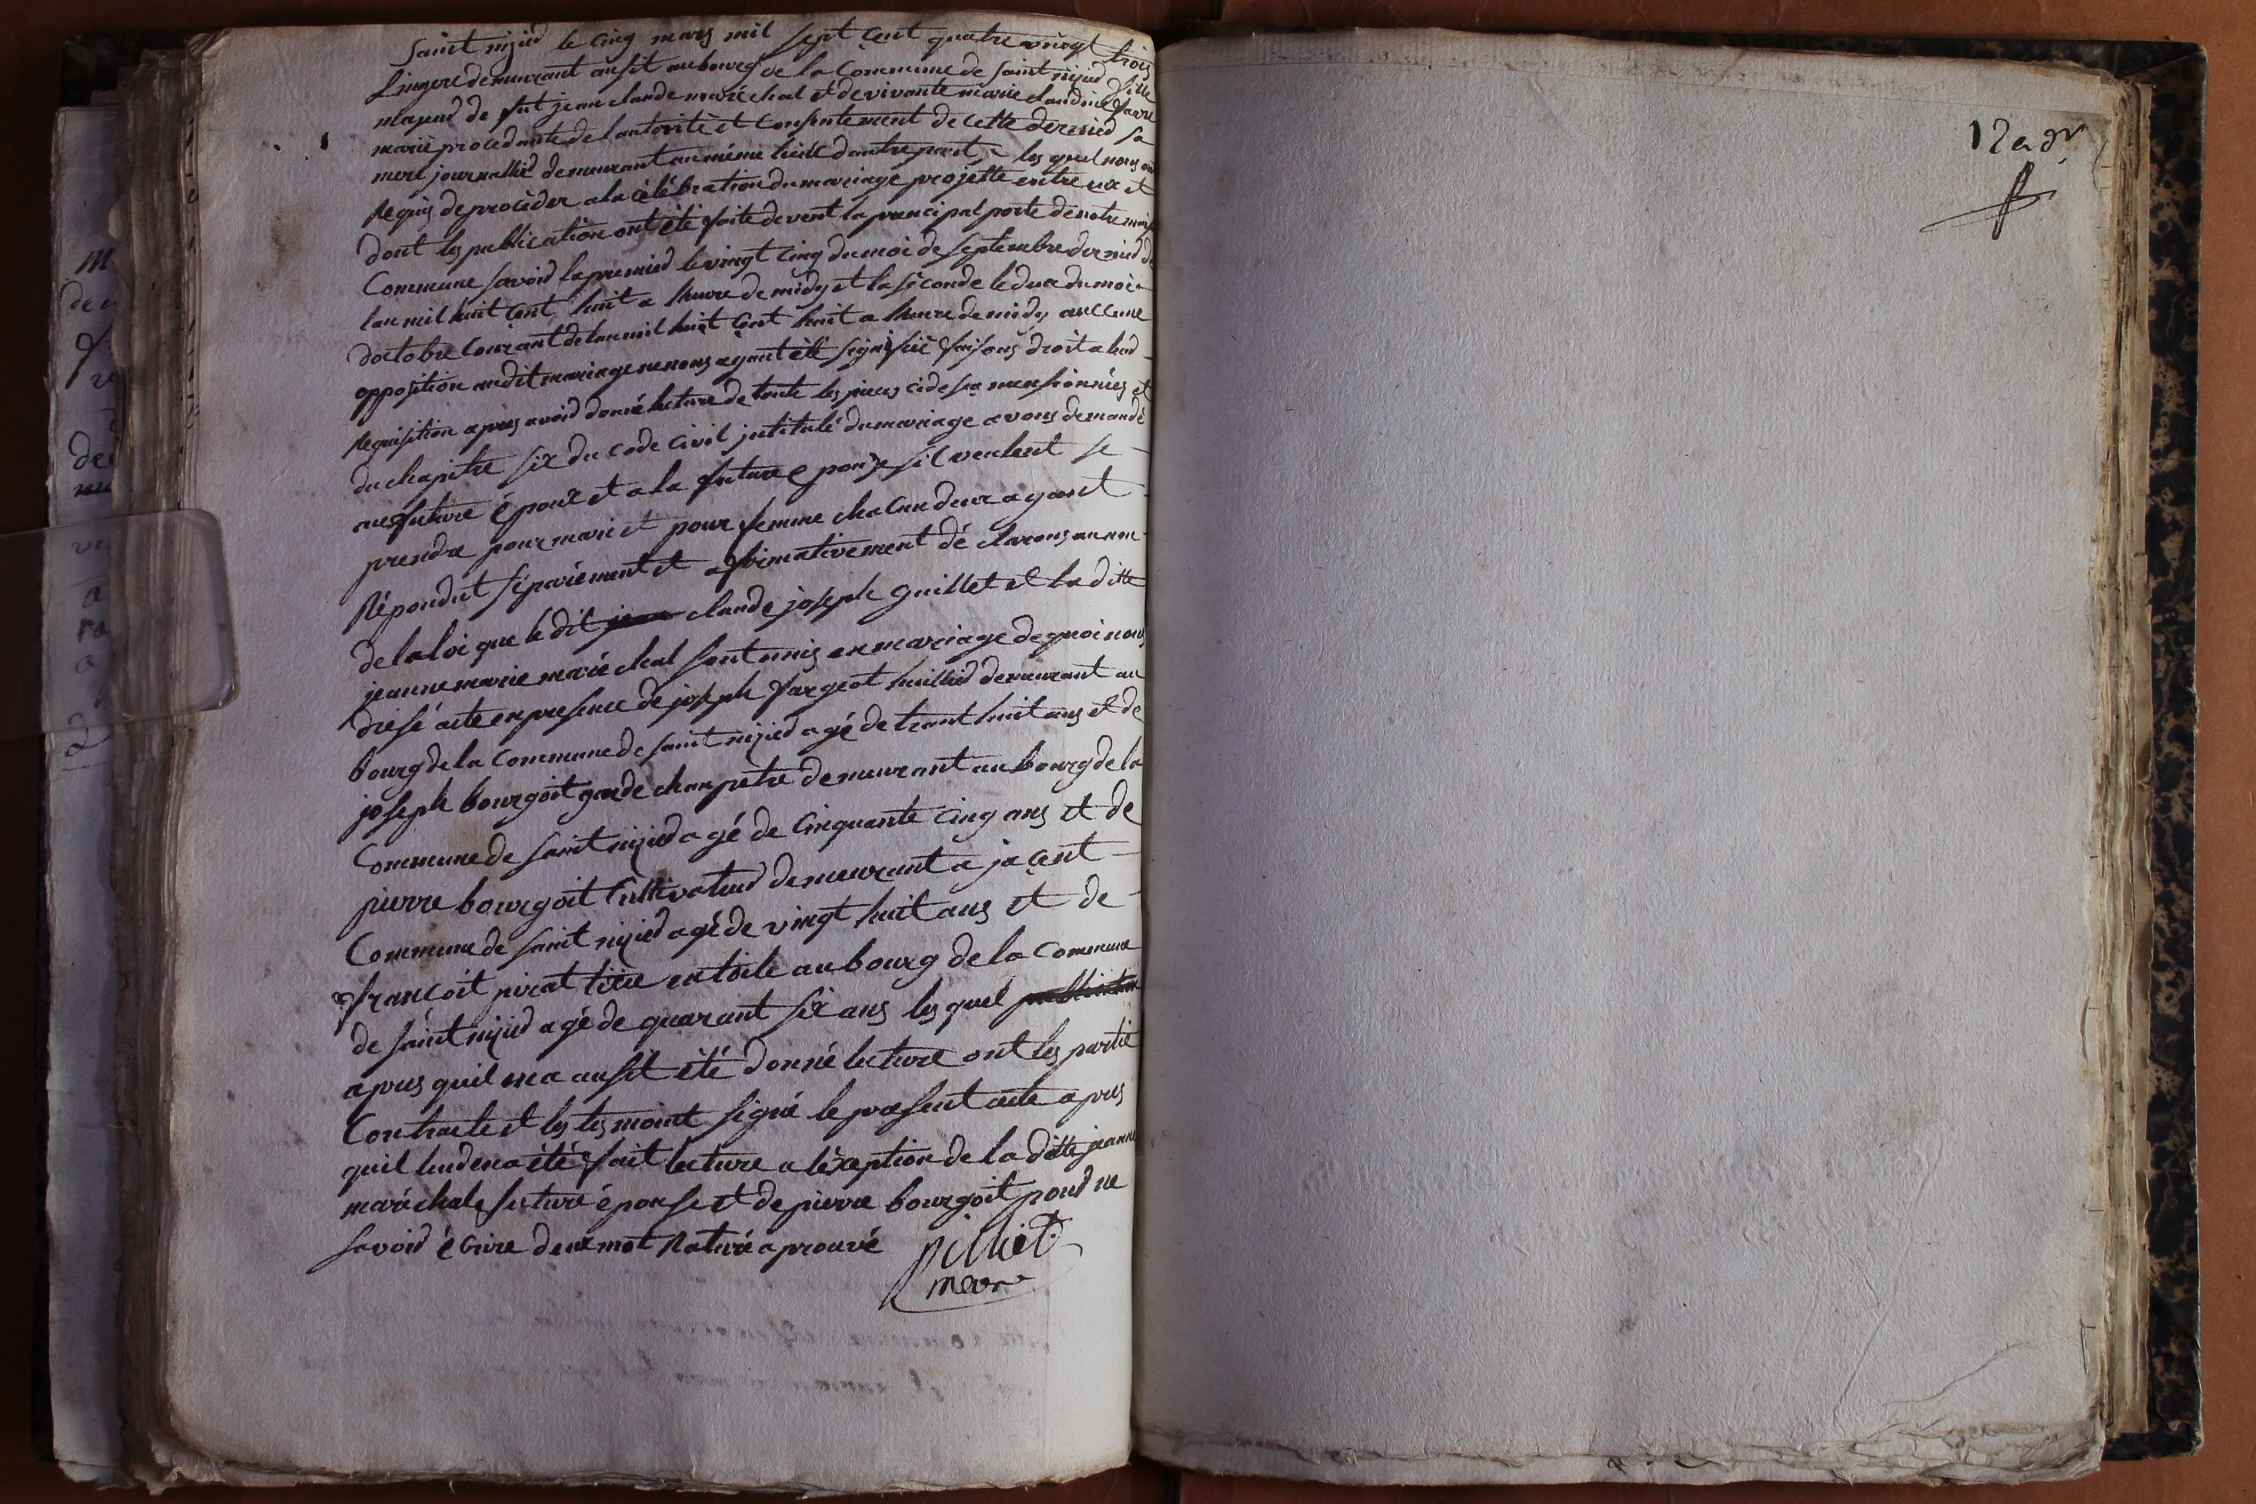 Saint nizied le cinq mars mil sept cent quatre vingt trois
Lingere demeurant ausit au bourg de la Commune de Saint nizied fille
majeud de fut jean claude maréchal et de vivante marie claudine favre
marié procedante de lautorité et Consentement de cette dernied sa
mere journallie demeurant au même lieu d'autre part, les quel nous ont
Requis de procèder a la célébration du mariage projette entre eux et
dont les publication ont été faite devent la principal porte de notre maison
Commune savoid la premied le vingt cinq du moi de septembre dernied de
lan mil huit cent huit a lheure de midy et la séconde le deux du moi
doctobre Courant de lan mil huit cent huit a lheure de midy aucune
opposition audit mariage ne nous ayant été signifié faisons droit a leud
Requisition apres avoid donné lecture de toute les pieces cidesu mensionnées et
du chapitre six du Code Civil jntitulé du mariage avons demandé
au future époux et a la future epouse sil veulent se
prendre pour marie et pour femme chacun deux ayant
Répondut séparément et affirmativement déclarons au nom
de la loi que le dit claude joseph guillet et la ditte
jeanne marie maréchal sont unis en mariage de quoi nous
dresé acte en presence de joseph fargeot huillied demeurant au
bourg de la Commune de saint nizied agé de trant huit ans et de
joseph bourgoit garde champetre demeurant au bourg de la
Commune de saint nizied agé de Cinquante cinq ans et de
pierre bourgoit Cultivateud demeurant a jacent
Commune de saint nizied agé de vingt huit ans et de
françoit pirat titie en toile au bourg de la Commune
de saint nizied agé de quarant six ans les quel
apres quil en a ausit été donné lecture ont les partie
Contracte et les temoint signé le present acte apres
quil leud en a été fait lecture a léxeption de la ditte jeanne
maréchale future épouse et de pierre bourgoit poud ne
savoid écrire deux mot Raturé aprouvé
pilliet
mer
12 en dr